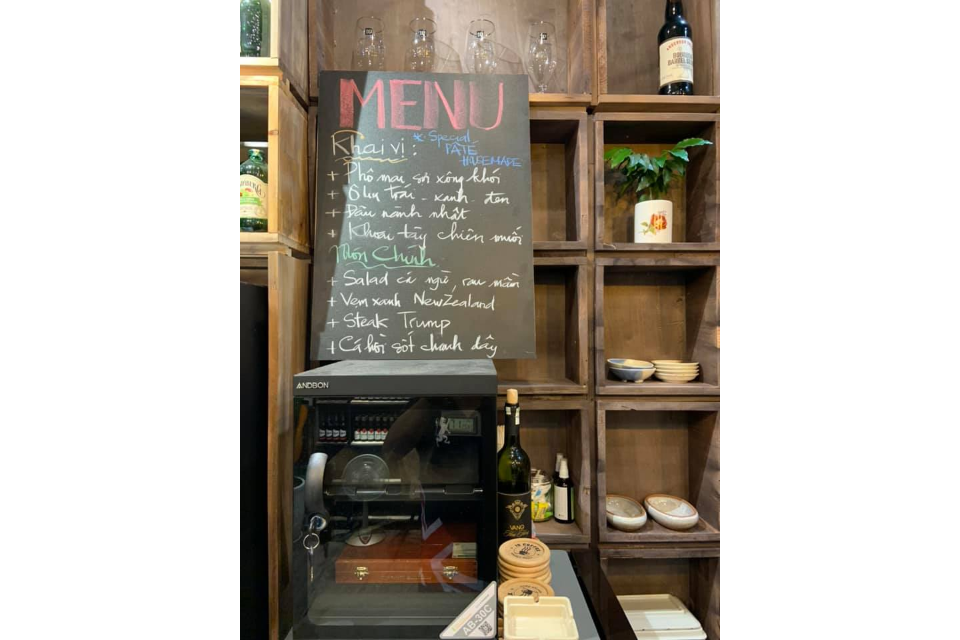 MENU
* Special
PATÊ
HOUSEMADE
Khai vị :
+ Phô mai sợi xông khói
+ Oliu trái - xanh - đen
+ Đậu nành nhật
+ Khoai tây chiên muối
Món Chính
+ Salad cá ngừ, rau mầm
+ Vẹm xanh NewZealand
+ Steak Trump
+ Cá hồi sốt chanh dây
ANDBON
VANO
AB-30C